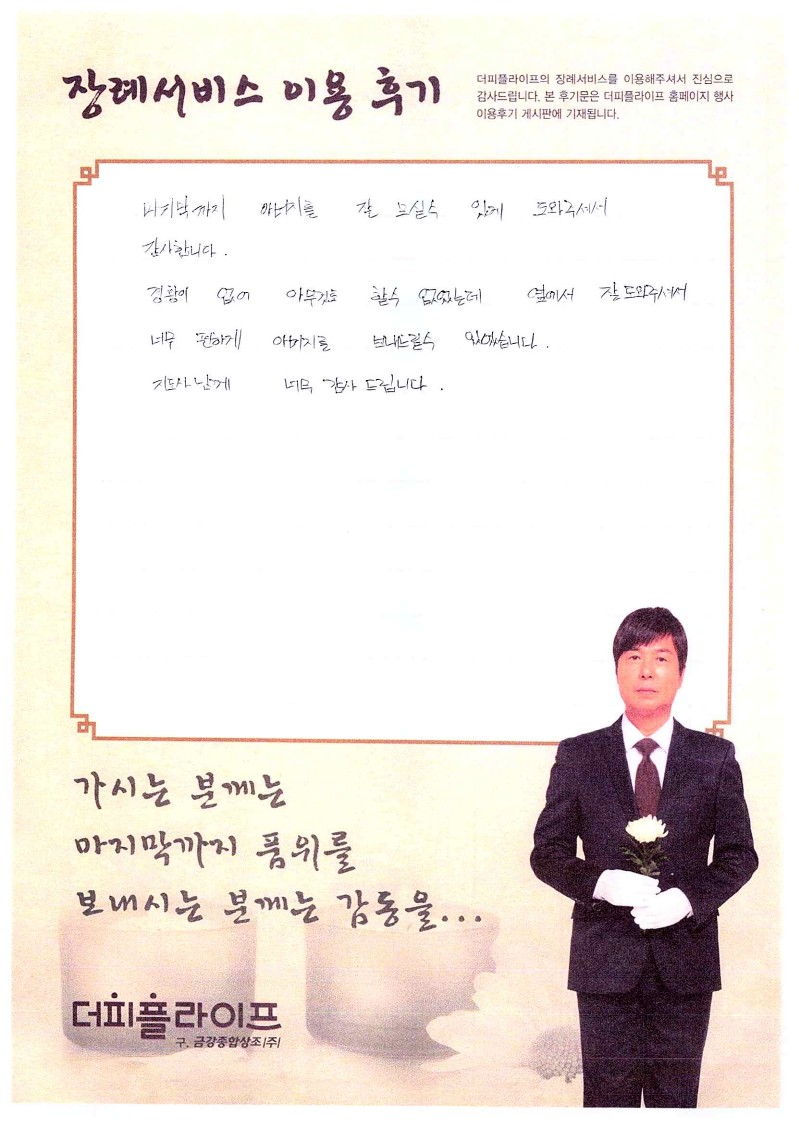 장례서비스 이용 후기
더피플라이프의 장례서비스를 이용해주셔서 진심으로
감사드립니다. 본 후기문은 더피플라이프 홈페이지 행사
이용후기 게시판에 기재됩니다.
마지막까지 아버지를 잘 모실수 있게 도와주셔서
감사합니다.
경황이 없어 아무것도 할수 없었는데 옆에서 잘 도와주셔서
너무 편하게 아버지를 보내드릴수 있었습니다.
지도사님께 너무 감사 드립니다.
가시는 분께는
마지막까지 품위를
보내시는 분께는 감동을...
더피플라이프
구. 금강종합상조(주)